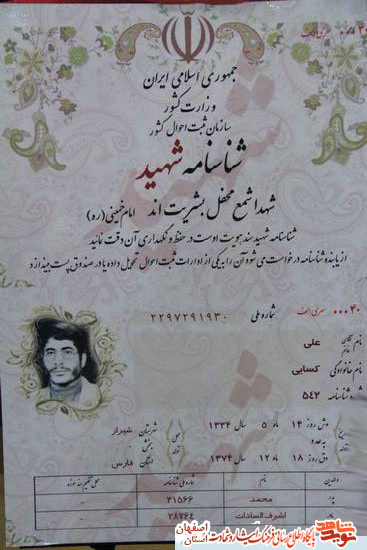 سری الف
جمهوری اسلامی ایران
وزارت کشور
سازمان ثبت احوال کشور
شناسنامه شهید
شهدا شمع محفل بشریت اند امام خمینی (ره)
شناسنامه شهید سند هویت اوست در حفظ و نگهداری آن دقت نمائید
از یابنده شناسنامه درخواست می شود آن را به یکی از ادارات ثبت احوال تحویل داده یا در صندوق پست بیندازد
سری الف ۰۰۰۰۴۰
شماره ملی ۲۲۹۷۲۹۱۹۳۰
نام علی
نام خانوادگی کسایی
شماره شناسنامه ۵۴۲
روز ۱۴ ماه ۵ سال ۱۳۳۴ شهرستان شیراز
بخش
روز ۱۸ ماه ۱۲ سال ۱۳۷۴ استان فارس
والدین نام شماره ملی شناسنامه محل تنظیم
پدر محمد ۳۱۵۶۶
مادر اشرف السادات ۲۸۷۶۴
نوید شاهد
پایگاه اطلاع رسانی فرهنگ ایثار و شهادت استان اصفهان